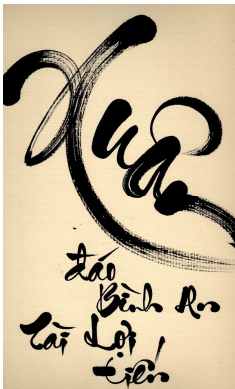 Xuân
đáo
Bình An
Tài Lợi
tiến